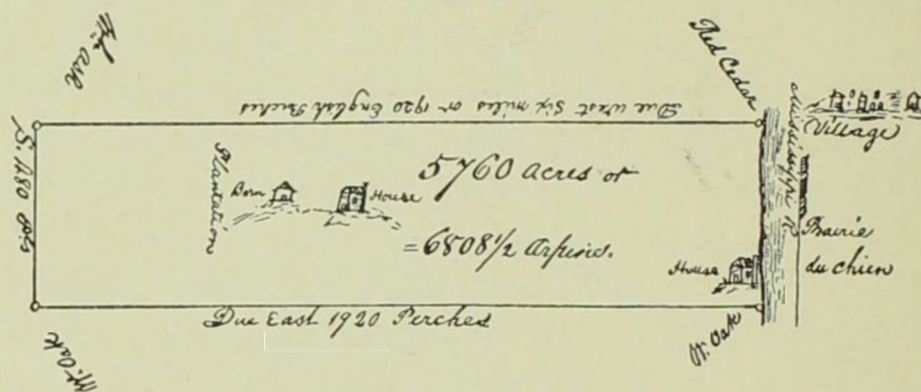 Ash
Red Cedar
Due west Six miles or 1920 English Perches
Mississippi R.
Village
S. 480
Plantation
Barn
House
5760 acres or
= 6808 1/2 Arpens.
House
Prairie
du Chien
Due East 1920 Perches
W. Oak
W. Oak